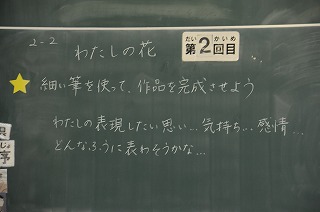 2-2
わたしの花
だい かいめ
第2回目
細い筆を使って、作品を完成させよう
わたしの表現したい思い…気持ち…感情…
どんなふうに表わそうかな…
予